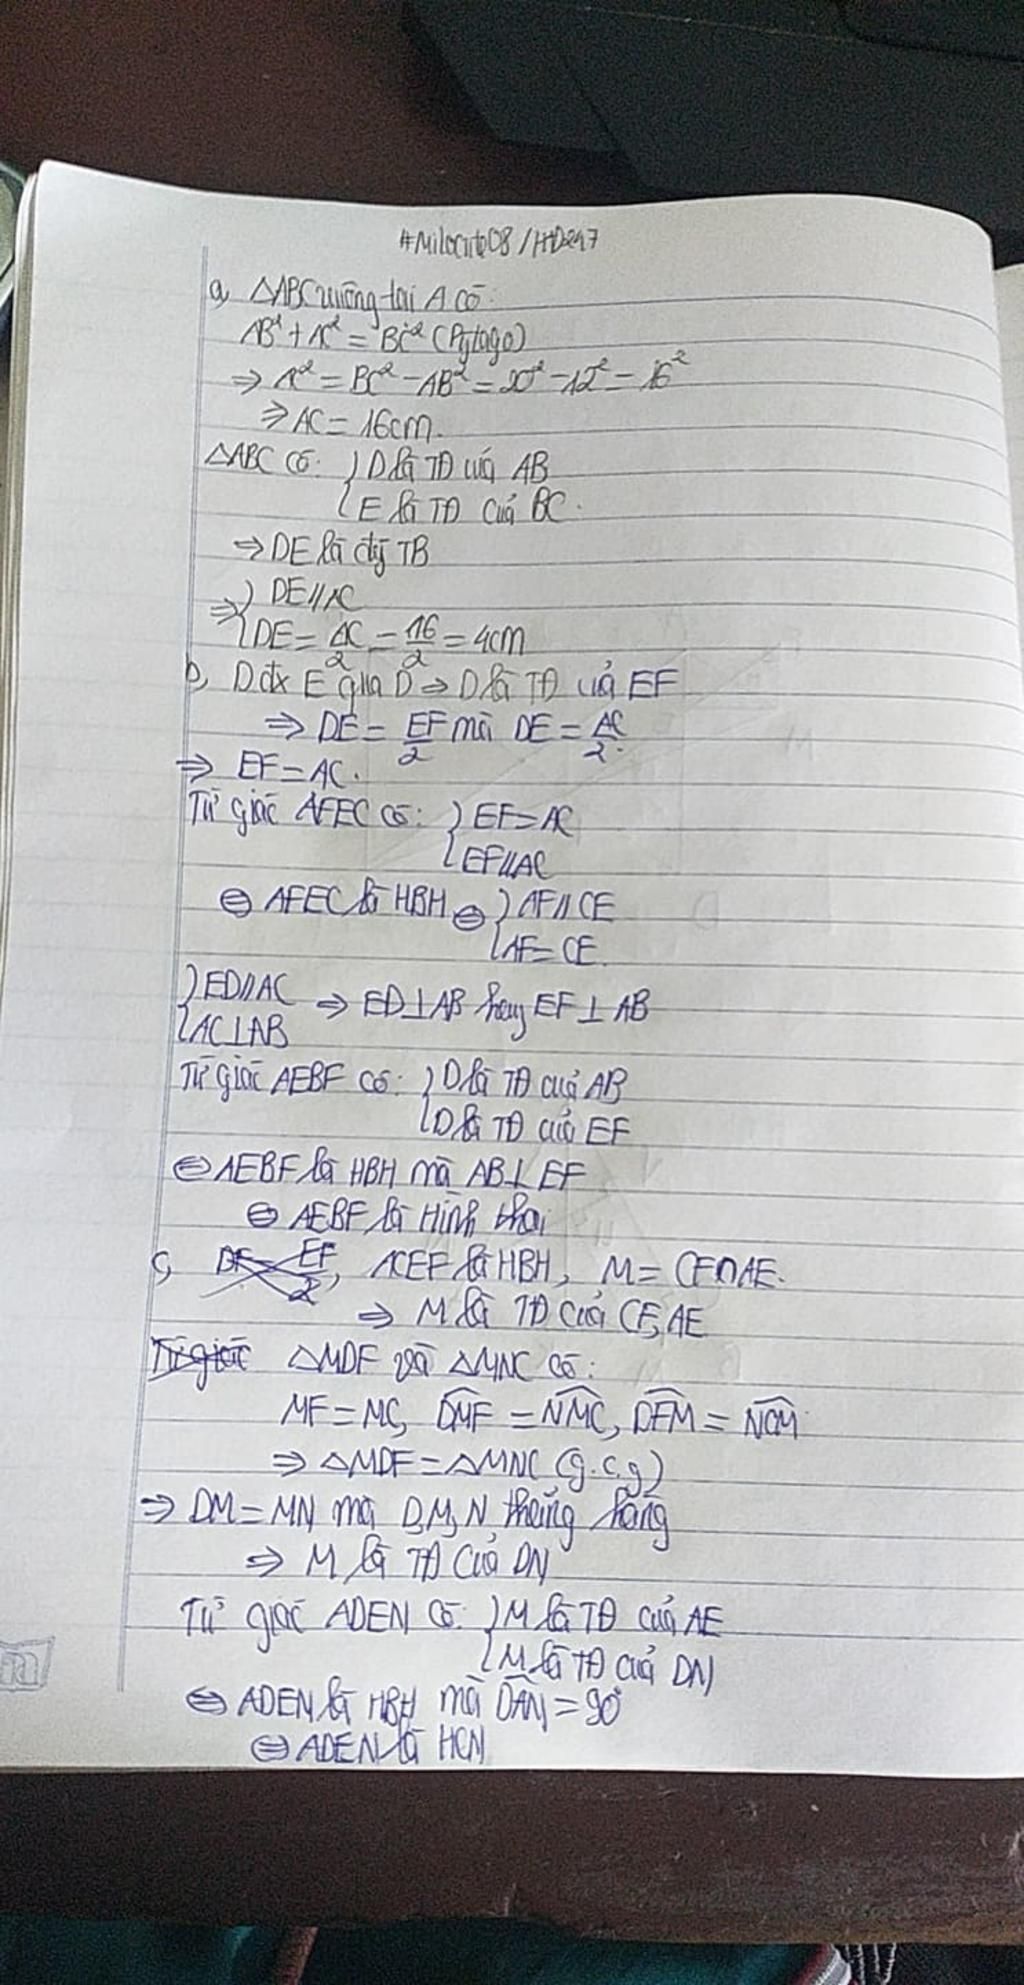 a, △ABC vuông tại A có:
AB² + AC² = BC² (Pytago)
⇒ AC² = BC² - AB² = 20² - 12² = 16²
⇒ AC = 16cm.
△ABC có: { D là TĐ của AB
{ E là TĐ của BC.
⇒ DE là đg TB
⇒ { DE // AC
{ DE = AC/2 = 16/2 = 4cm
b, D đx E qua D ⇒ D là TĐ của EF
⇒ DE = EF/2 mà DE = AC/2.
⇒ EF = AC.
Tứ giác AFEC có: { EF = AC
{ EF // AC
⇔ AFEC là HBH ⇔ { AF // CE
{ AF = CE.
{ ED // AC ⇒ ED ⊥ AB hay EF ⊥ AB
{ AC ⊥ AB
Tứ giác AEBF có: { D là TĐ của AB
{ D là TĐ của EF
⇔ AEBF là HBH mà AB ⊥ EF
⇔ AEBF là Hình thoi
c, DF EF/2, ACEF là HBH, M = CF ∩ AE.
⇒ M là TĐ của CF, AE
Tứ giác △MDF và △MNC có:
MF = MC, DMF = NMC, DFM = NCM
⇒ △MDF = △MNC (g.c.g)
⇒ DM = MN mà D, M, N thẳng hàng
⇒ M là TĐ của DN
Tứ giác ADEN có: { M là TĐ của AE
{ M là TĐ của DN
⇔ ADEN là HBH mà DAN = 90°
⇔ ADEN là HCN